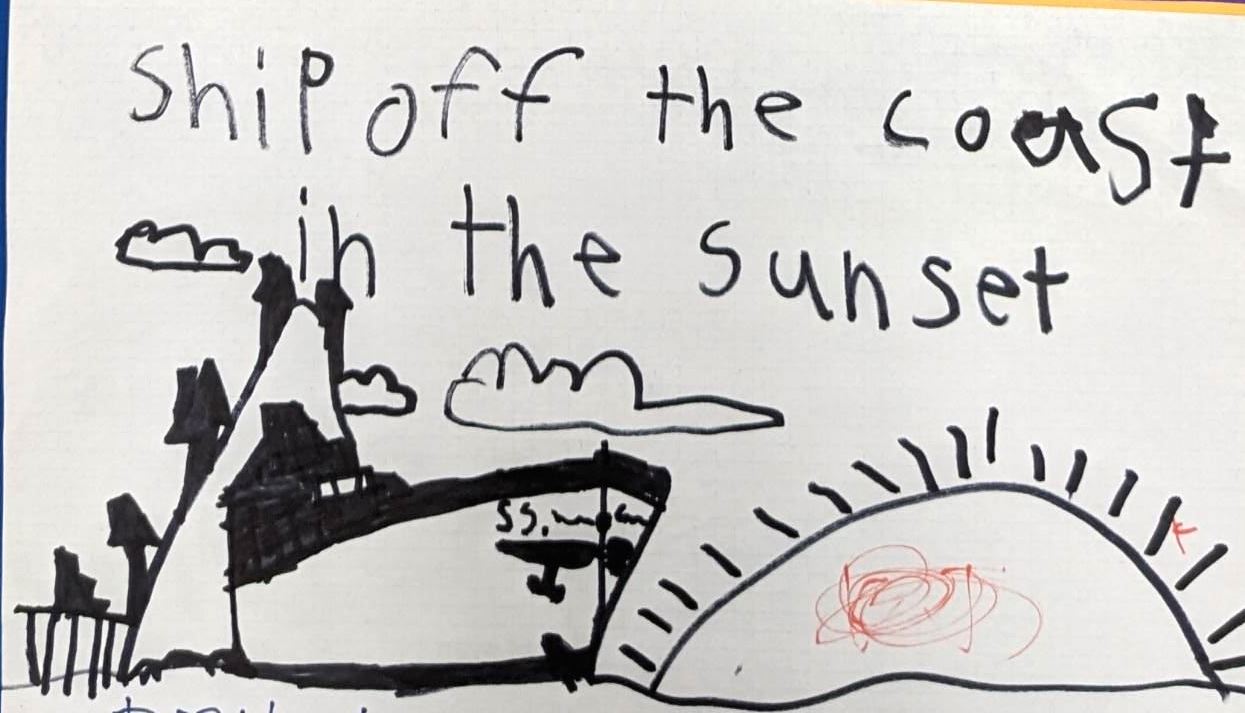 Ship off the coast
in the sunset
SS.